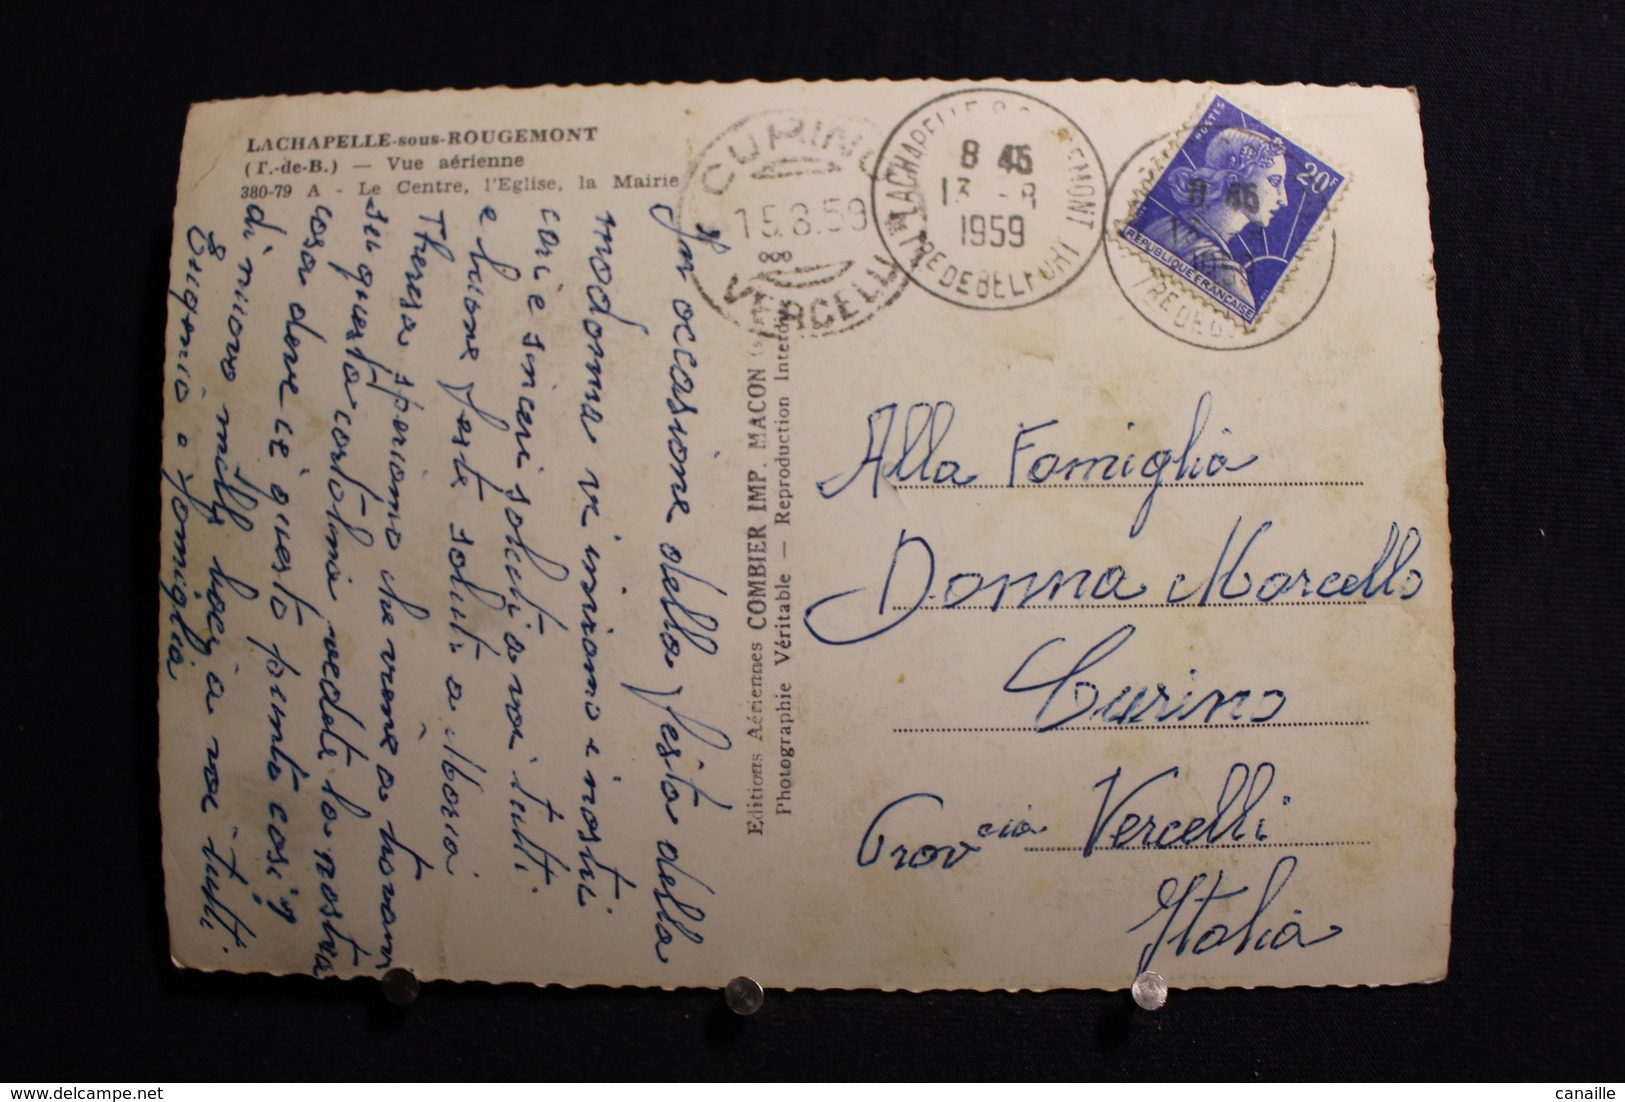 LACHAPELLE-sous-ROUGEMONT
(T.-de-B.) — Vue aérienne
380-79 A - Le Centre, l'Eglise, la Mairie
CURINO
15.8.59
VERCELLI
LACHAPELLE S. ROUGEMONT
8 45
13 -8
1959
TRE DE BELFORT
8 45
1959
TRE DE B
POSTES
20F
REPUBLIQUE FRANÇAISE
In occasione della festa della
madonna vi inviamo i nostri
cari e sinceri saluti a voi tutti
e buone feste saluti a Maria
Theresa speriamo che viene a trovarci
su questa cartolina vedete la nostra
casa dove c'è questo punto così
di nuovo mille baci a voi tutti
Eugenio e famiglia
Editions Aériennes COMBIER IMP. MACON
Photographie Véritable — Reproduction Interdite
Alla Famiglia
Donna Marcello
Curino
Provcia Vercelli
Italia
delcampe.net
canaille